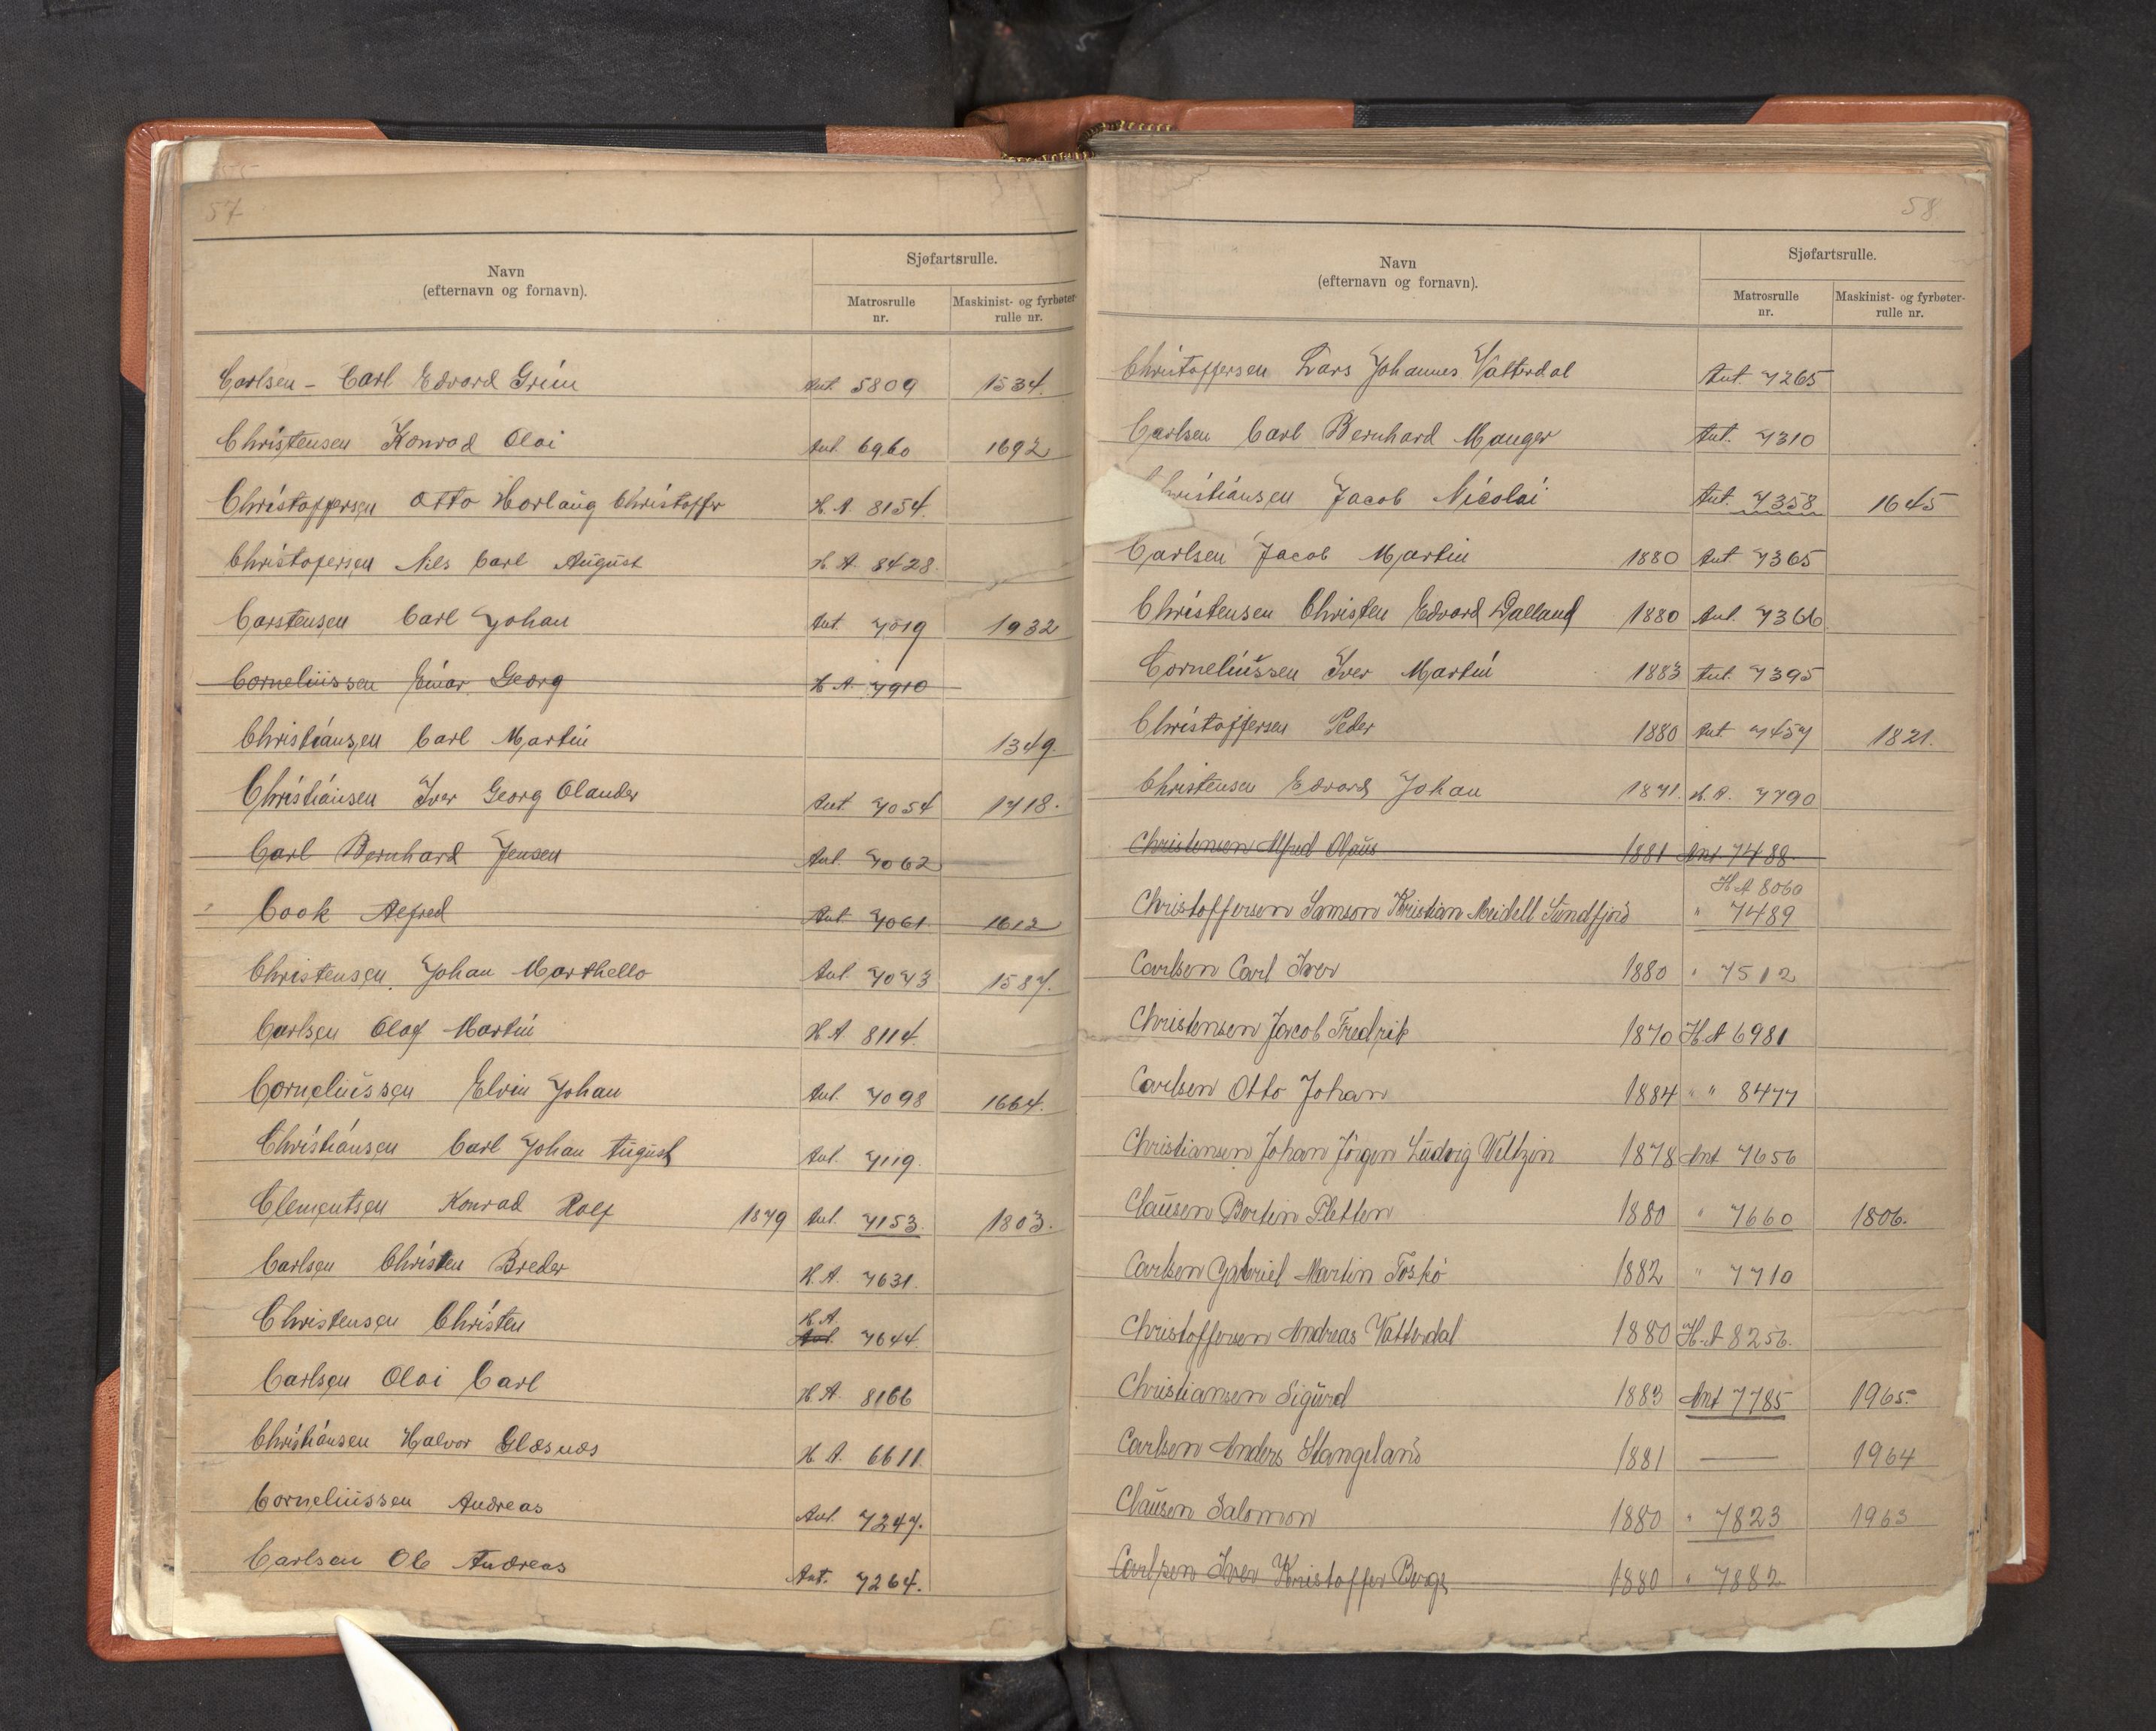 57
Navn
(efternavn og fornavn).
Sjøfartsrulle.
Matrosrulle
nr.
Maskinist- og fyrbøter-
rulle nr.
Carlsen - Carl Edvard Grim Ant. 5809 1534.
Christensen Konrad Olai Ant. 6960 1692
Christoffersen Otto Horlaug Christoffer H. A. 8154.
Christofersen Nils Carl August H. A. 8428.
Carstensen Carl Johan Ant. 7019 1932
Corneliussen Einar Georg H. A. 7910
Christiansen Carl Martin 1349.
Christiansen Iver Georg Olander Ant. 7054 1718.
Carl Bernhard Jensen Ant. 7062
Cook Alfred Ant. 7061. 1612
Christensen, Johan Marthello Ant. 7073 1587.
Carlsen Olaf Martin H A 8114.
Corneliussen Elvin Johan Ant. 7098 1664.
Christiansen Carl Johan August Ant. 7119.
Clementsen Konrad Rolf 1879 Ant. 7153. 1803.
Carlsen Christen Breder H. A. 7631.
Christensen Christen H. A. Ant. 7644.
Carlsen Olai Carl H. A. 8166
Christiansen Halvor Glæsnæs H. A. 6611.
Corneliussen Andreas Ant. 7247.
Carlsen Ole Andreas Ant. 7264.
58
Navn
(efternavn og fornavn).
Sjøfartsrulle.
Matrosrulle
nr.
Maskinist- og fyrbøter-
rulle nr.
Christoffersen Lars Johannes Vatterdal Ant. 7265
Carlsen Carl Bernhard Manger Ant. 7310
hristiansen Jacob Nicolai Ant. 7358 1645
Carlsen Jacob Martin 1880 Ant. 7365
Christensen Christen Edvard Dalland 1880 Ant. 7366
Corneliussen Iver Martin 1883 Ant. 7395
Christoffersen Peder 1880 Ant 7457 1821.
Christensen Edvard Johan 1871. H. A. 7790
Christensen Alfred Olaus 1881 Ant 7488.
H A 8060
Christoffersen Samson Kristian Meidell Sundfjord " 7489
Carlsen Carl Iver 1880 " 7512
Christensen Jacob Fredrik 1870 H. A 6981
Carlsen Otto Johan 1884 " " 8477
Christiansen Johan Jörgen Ludvig Weltzin 1878 Ant 7656
Clausen Bertin Pletten 1880 " 7660 1806.
Carlsen Gabriel Martin Toskö 1882 " 7710
Christoffersen Andreas Vatterdal 1880 H. A 8256.
Christiansen Sigurd 1883 Ant 7785 1965.
Carlsen Anders Stangeland 1881 — 1964
Clausen Salomon 1880 " 7823 1963
Carlsen Iver Kristoffer Berge 1880 " 7882